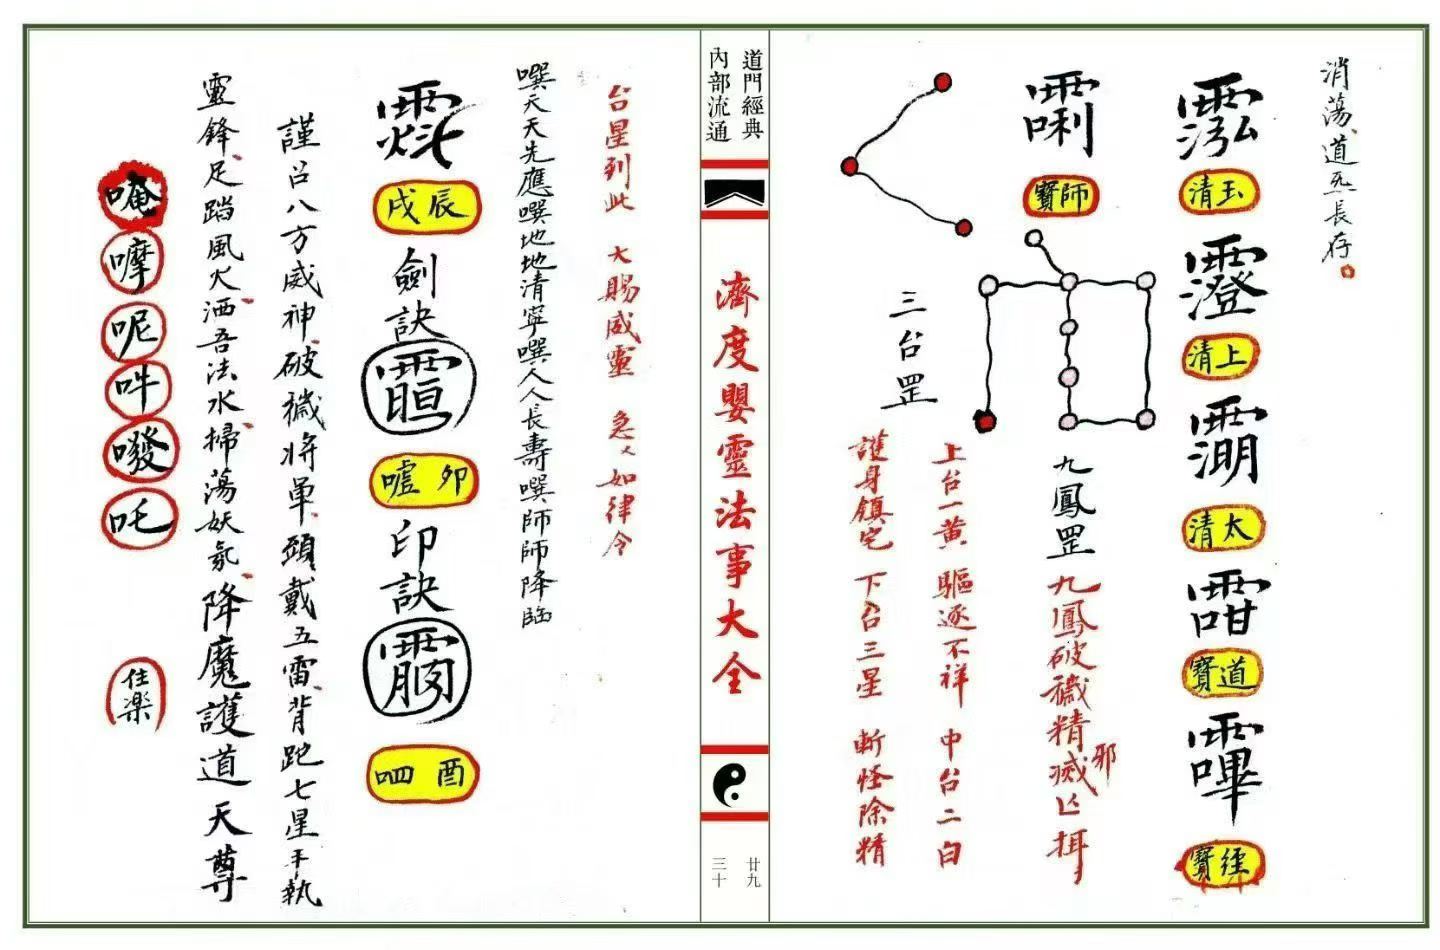 消荡道炁長存
玉清
上清
太清
道寶
經寶
師寶
九鳳罡
九鳳破穢精邪滅亡
三台罡
上台一黄 驅逐不祥 中台二白
護身鎮宅 下台三星 斬怪除精
道門經典
內部流通
濟度嬰靈法事大全
廿九
三十
台星到此 大賜威靈 急々如律令
噀天天先應噀地地清寧噀人人長壽噀師師降臨
辰戌
劍訣
卯
噓
印訣
酉
呬
謹召八方威神破穢將軍頭戴五雷背跑七星手執
靈鋒足踏風火洒吾法水掃荡妖氛降魔護道天尊
唵
嚤
呢
吽
㗶
吒
住楽